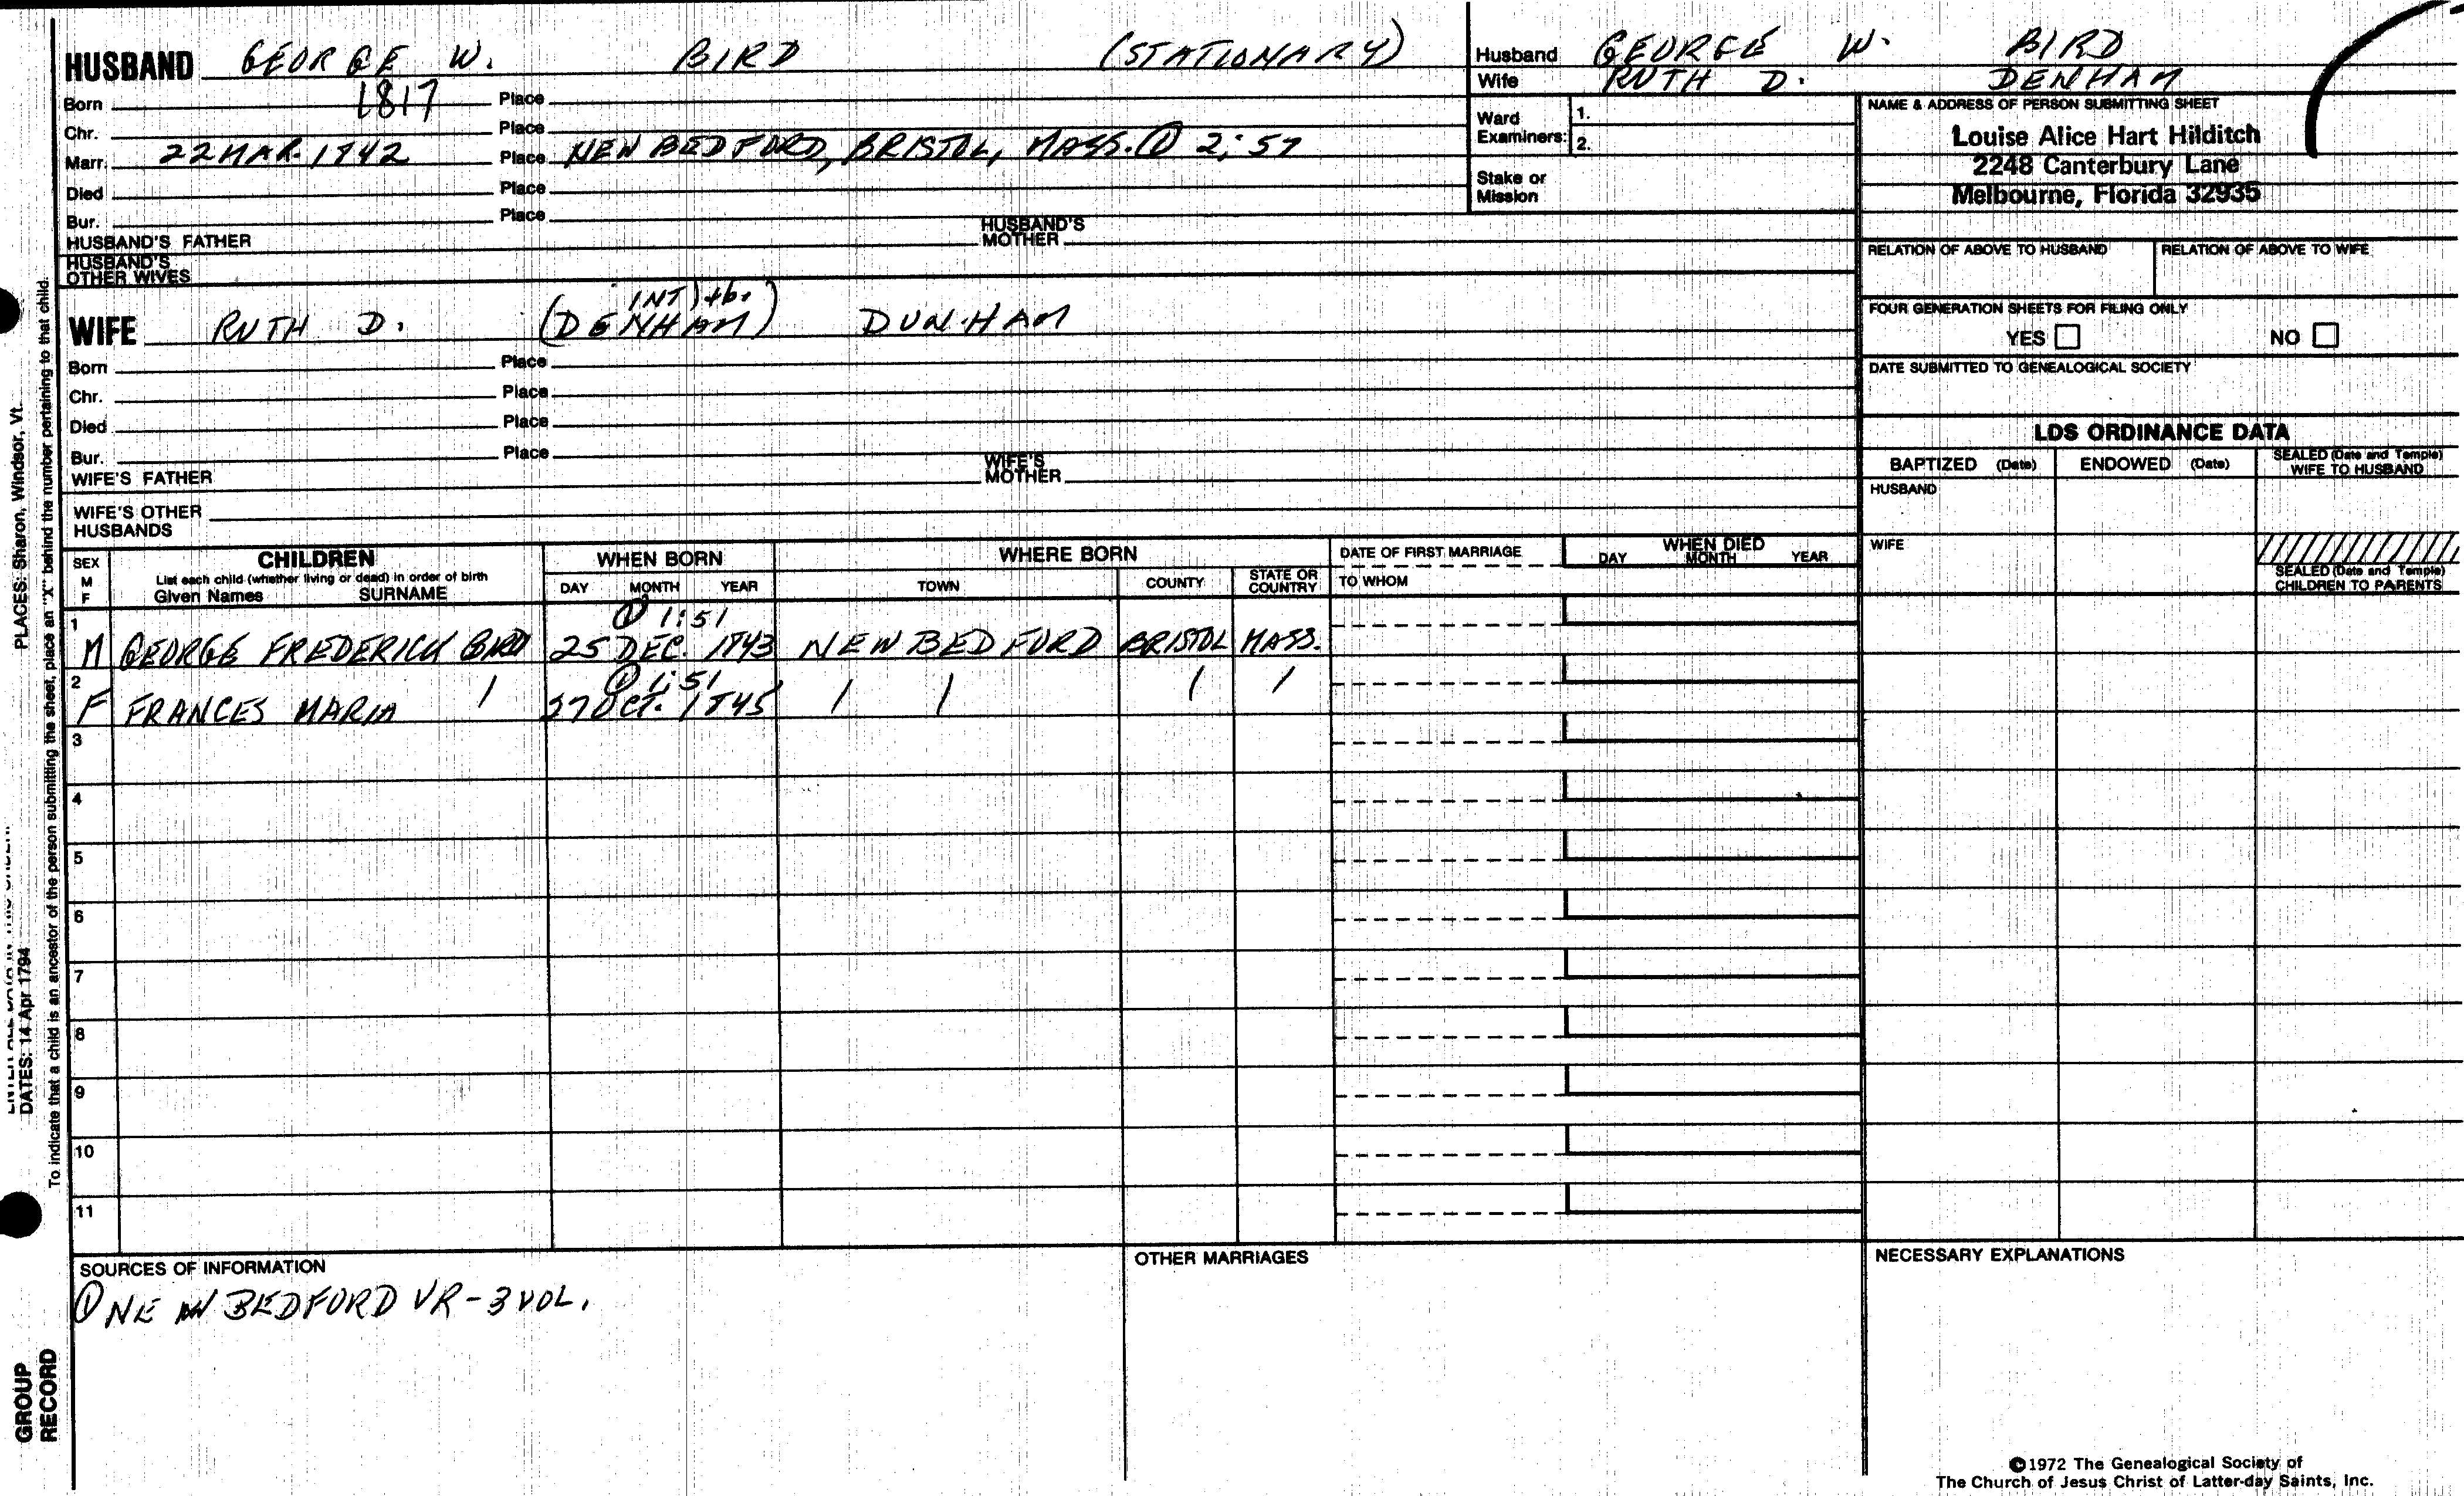 HUSBAND GEORGE W. BIRD (STATIONARY)
Born 1817 Place
Chr. Place
Marr. 22 MAR. 1842 Place NEW BEDFORD, BRISTOL, MASS. ① 2:57
Died Place
Bur. Place
HUSBAND'S FATHER HUSBAND'S MOTHER
HUSBAND'S OTHER WIVES
INT) + b.
WIFE RUTH D. (DENHAM) DUNHAM
Born Place
Chr. Place
Died Place
Bur. Place
WIFE'S FATHER WIFE'S MOTHER
WIFE'S OTHER HUSBANDS
Husband GEORGE W. BIRD
Wife RUTH D. DENHAM
Ward Examiners: 1.
2.
Stake or Mission
NAME & ADDRESS OF PERSON SUBMITTING SHEET
Louise Alice Hart Hilditch
2248 Canterbury Lane
Melbourne, Florida 32935
RELATION OF ABOVE TO HUSBAND RELATION OF ABOVE TO WIFE
FOUR GENERATION SHEETS FOR FILING ONLY
YES NO
DATE SUBMITTED TO GENEALOGICAL SOCIETY
LDS ORDINANCE DATA
BAPTIZED (Date) ENDOWED (Date) SEALED (Date and Temple) WIFE TO HUSBAND
HUSBAND
WIFE
SEALED (Date and Temple) CHILDREN TO PARENTS
SEX M F CHILDREN WHEN BORN WHERE BORN DATE OF FIRST MARRIAGE WHEN DIED
List each child (whether living or dead) in order of birth
Given Names SURNAME DAY MONTH YEAR TOWN COUNTY STATE OR COUNTRY TO WHOM DAY MONTH YEAR
1 ① 1:51
M GEORGE FREDERICK BIRD 25 DEC. 1843 NEW BEDFORD BRISTOL MASS.
2 ① 1:51
F FRANCES MARIA / 27 OCT. 1845 / / / /
3
4
5
6
7
8
9
10
11
SOURCES OF INFORMATION
① NEW BEDFORD VR - 3 VOL.
OTHER MARRIAGES
NECESSARY EXPLANATIONS
©1972 The Genealogical Society of
The Church of Jesus Christ of Latter-day Saints, Inc.
PLACES: Sharon, Windsor, Vt.
DATES: 14 Apr 1794
To indicate that a child is an ancestor of the person submitting the sheet, place an "X" behind the number pertaining to that child.
GROUP
RECORD